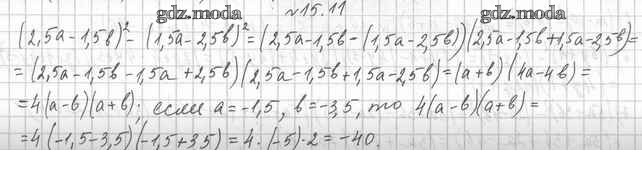 gdz.moda
gdz.moda
№15.11
(2,5a-1,5b)²-(1,5a-2,5b)²=(2,5a-1,5b-(1,5a-2,5b))(2,5a-1,5b+1,5a-2,5b)=
=(2,5a-1,5b-1,5a+2,5b)(2,5a-1,5b+1,5a-2,5b)=(a+b)(4a-4b)=
=4(a-b)(a+b); если a=-1,5, b=-3,5, то 4(a-b)(a+b)=
=4(-1,5-3,5)(-1,5+3,5)=4·(-5)·2=-40.